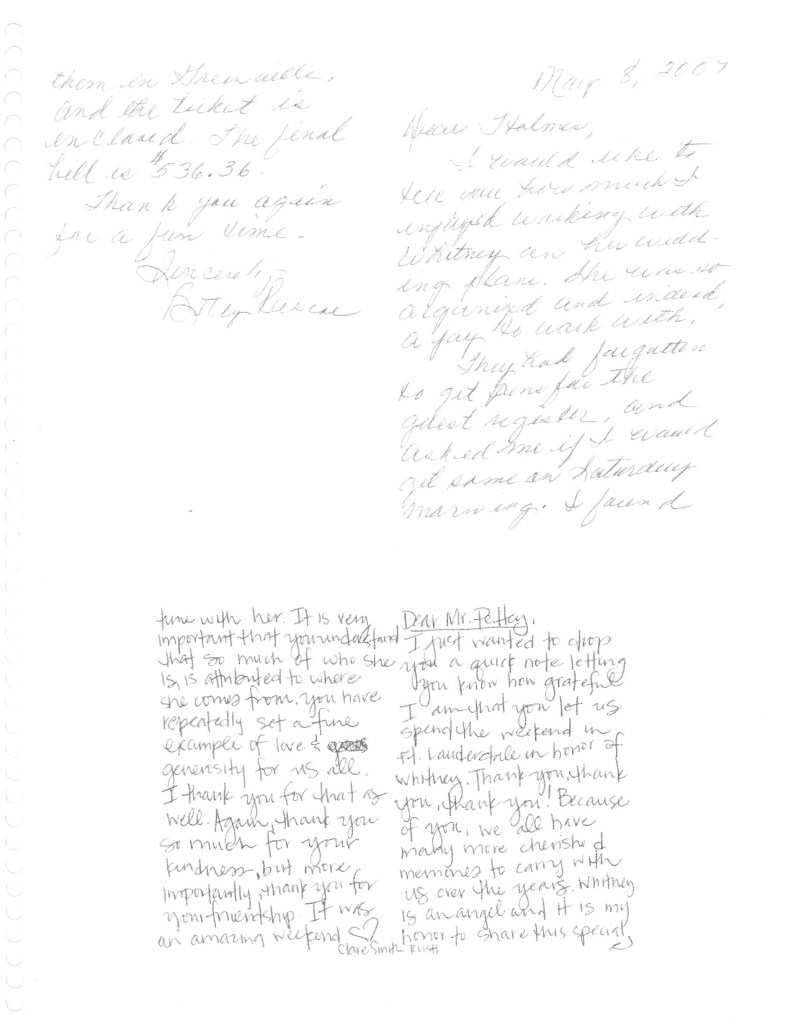 May 8, 2007
Dear Holmes,
I would like to
tell you how much I
enjoyed working with
Whitney on her wedd-
ing plans. She was so
organized and indeed,
a joy to work with.
They had forgotten
to get pens for the
guest register, and
asked me if I would
get some on Saturday
morning. I found
them in Greenville,
and the ticket is
enclosed. The final
bill is $536.36.
Thank you again
for a fun time.
Sincerely,
Dear Mr. Pettey,
I just wanted to drop
you a quick note letting
you know how grateful
I am that you let us
spend the weekend in
Ft. Lauderdale in honor of
Whitney. Thank you, thank
you, thank you! Because
of you, we all have
many more cherished
memories to carry with
us over the years. Whitney
is an angel and it is my
honor to share this special
time with her. It is very
important that you understand
that so much of who she
is, is attributed to where
she comes from. You have
repeatedly set a fine
example of love &
generosity for us all.
I thank you for that as
well. Again, thank you
so much for your
kindness, but more
importantly, thank you for
your friendship. It was
an amazing weekend
Clare Smith Rush